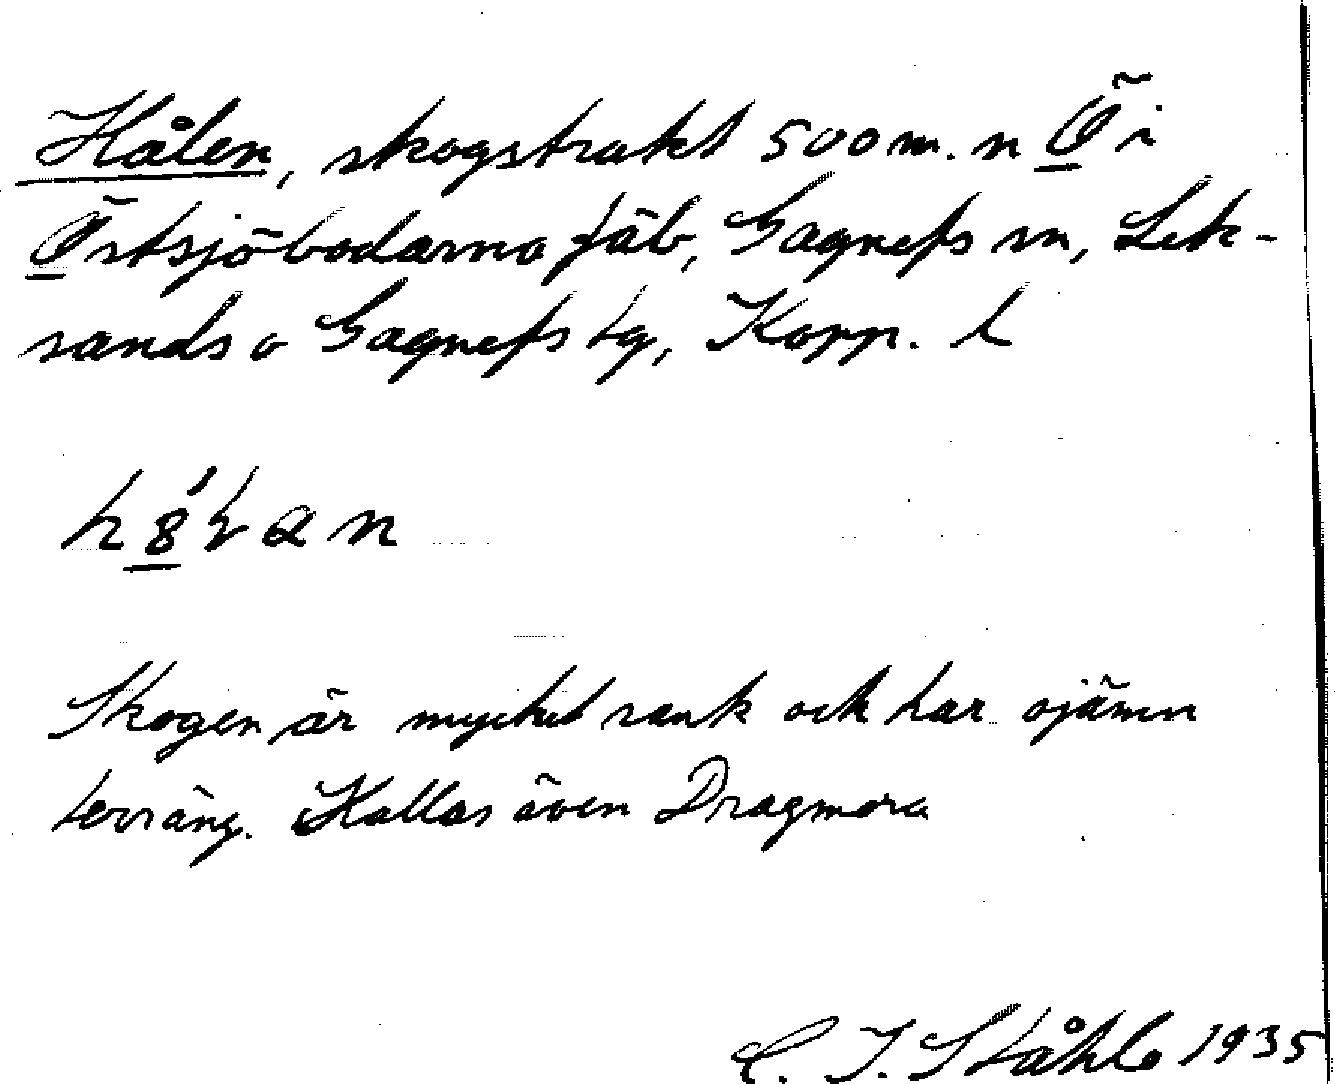 Hålen, skogstrakt 500 m. n Ö i
Östsjöbodarna fäb, Gagnefs sn, Lek-
sands o Gagnefs tg, Kopp. l
Skogen är mycket sank och har ojämn
terräng. Kallas även Dragmora
C. I. Ståhle 1935